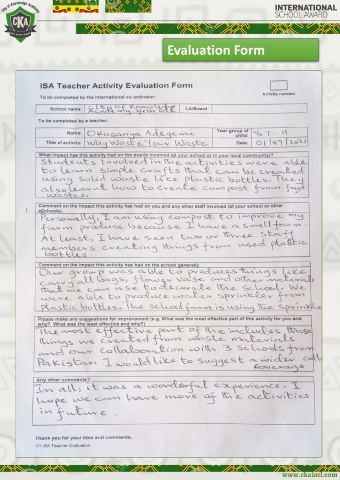 City of Knowledge Academy
CKA
INTERNATIONAL
SCHOOL AWARD
Evaluation Form
ISA Teacher Activity Evaluation Form
To be completed by the international co-ordinator:
Activity number
School name: City of Knowledge Academy,
LA/Board:
To be completed by a teacher:
Name: Okusanya Adeyemi
Year group of child: Yr 7 - 11
Title of activity: Why Waste Your Waste
Date: 01/07/2021
What impact has this activity had on the pupils involved (at your school or in your local community)?
Students involved in the activities were able
to learn simple crafts that can be created
using solid waste like plastic bottles. They
also learnt how to create compost from food
wastes.
Comment on the impact this activity has had on you and any other staff involved (at your school or other
school(s)).
Personally, I am using compost to improve my
farm produce because I have a small farm.
At least, I have seen two or three staff
members creating things from used plastic
bottles.
Comment on the impact this activity has had on the school generally.
Our group was able to produce things like
carry all bags, flower vase and other materials
that we can use to decorate the school. We
were able to produce water sprinkler from
plastic bottles. The school farm is using the sprinkler
Please make any suggestions for improvement (e.g. What was the most effective part of this activity for you and
why? What was the least effective and why?)
The most effective part of the includes those
things we created from waste materials
and our collaboration with 3 schools from
Pakistan. I would like to suggest a wider
coverage
Any other comments?
In all, it was a wonderful experience. I
hope we can have more of the activities
in future.
Thank you for your time and comments.
ISA Teacher Evaluation
www.ckaintl.com